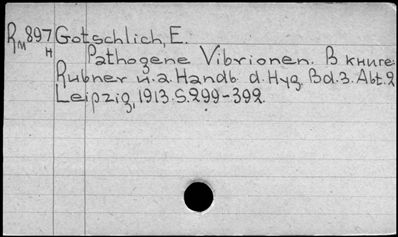 Rм897 Gotschlich, E.
н Pathogene Vibrionen. В книге:
Rubner u. a. Handb. d. Hyg. Bd. 3. Abt. 2
Leipzig, 1913. S. 299-392.